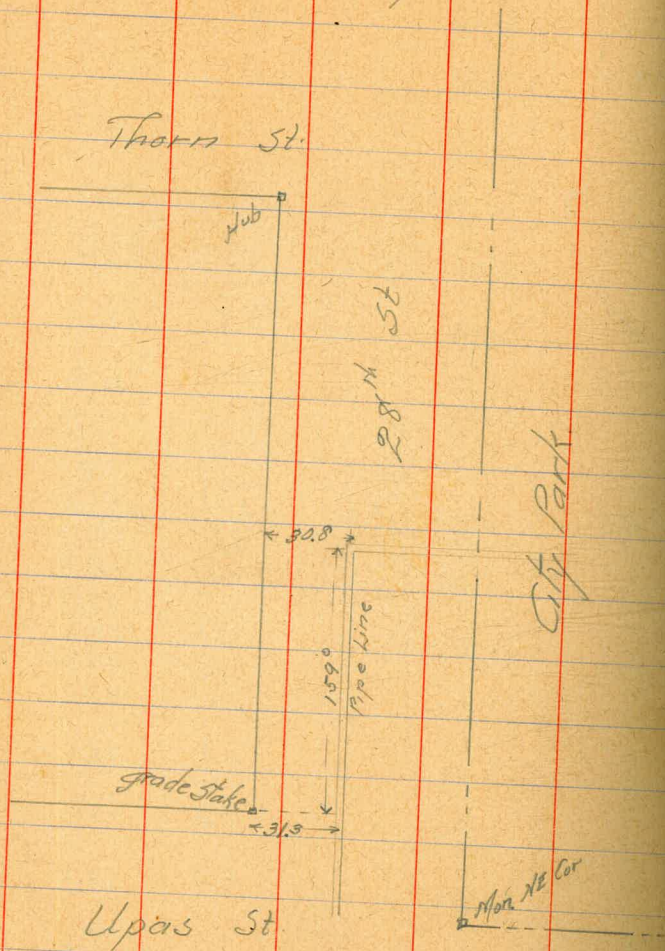 Thorn St.
Hub
28th St
City Park
30.8
159°
Pipe Line
grade stake
31.3
Mon. NE Cor
Upas St